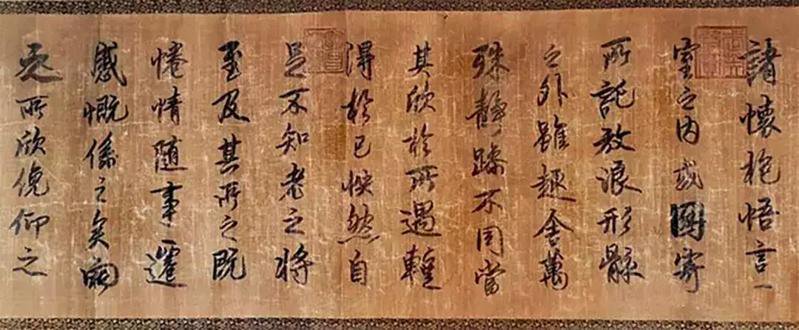 諸懷抱悟言一
室之內或因寄
所託放浪形骸
之外雖趣舍萬
殊靜躁不同當
其欣於所遇
得於己怏然自
足不知老之將
至及其所之既
惓情隨事遷
感慨係之矣向
之所欣俛仰之